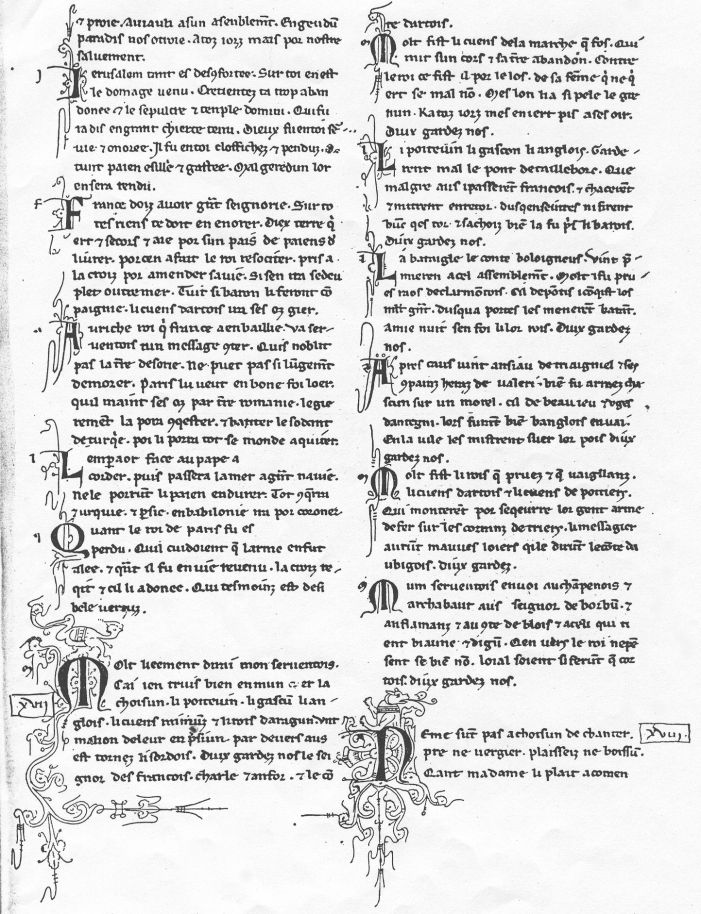 ⁊ proie. Auiauti asun asenblemt. En gendũ
paradis nos otroie. Atoz iorz mais por nostre
sauuement.
Ierusalem tant es desoffortee. Sur toi en est
le domage venu. Crestientez ta trop aban
donee ⁊ le sepulcre ⁊ temple domini. Qui fu
iadis en grant chierte tenu. Dieux fu en toi se
uie ⁊ onoree.
turc paien essille ⁊ gastee. Mal geredun lor
en sera rendu.
France doiz auoir gñt seignorie. Sur to
tes riens te doit en enorer. Diex terre q̃
ert ⁊ secors ⁊ aie por sun païs de paiens d
liurer. por cen afait le roi resoitier. pris a
la croiz por amender sa uie. Si sen ira sedeu
plet outre mer. Tuit si baron li feront cõ
paignie. li cuens dartois ira ses oz gier.
Auriche roi q̃ france a en baillie. Va ser
uentois dun message 9ter. Quis noblit
pas la tre desorie. Ne puet pas si lũgemt
demorer. Paris li ueut en bone foi loer.
quil maint ses oz par tre romanie. legie
remẽt la porra 9qester. ⁊ batiter le sodant
de turq̃e. poi li porra tot se monde aquiter.
Lemp̃aor face au pape a
corder. puis passera la mer a gñt nauie.
ne le porrũt li paien endurer. Tot 9q̃rra
⁊ turquie. ⁊ p̃sie. en babilonie ira por coroner
Quant le roi de paris fu es
perdu. Qui cuidoient q̃ larme en fut
alee. ⁊ q̃nt il fu en uie reuenu. la croiz re
q̃it ⁊ cil li a donee. Qui tesmoinz est desi
bele uertuz.
XVII
Molt lieement dirai mon seruentois.
Car ien truis bien en mun cuer la
choisun. li poiteuin. li gascũ li an
glois. li cuens raimũz ⁊ li rois daragun ont
mation de leur en p̃sũn. par deuers aus
est tornez li sordois. Diux gardez nos le sei
gnor des francois. charle ⁊ anfor. ⁊ le cõ
te dartois.
Molt fist li cuens de la marche q̃ fos. Qui
mit sun cors ⁊ sa tre abandon. Contre
le roi ce fist il por le los. de sa feme q̃ ne q̃
ert se mal nõ. Mes lon li a si pele le gre
nun. Ka toz iorz mes en iert pis a ses oir.
Diux gardez nos.
Li poiteuin li gascon li anglois. Garde
rent mal le pont de taillebore. Que
malgre aus ipasserent francois. ⁊ chacerent
⁊ mirent en retor. dusqen seintes ni firent
buc̃ qes tor. ⁊ sachoiz bien la fu p̃s li barois.
Diux gardez nos.
La bataigle le conte boloigneus. Vint p̃
mieren a cel assemblemt. Molt i fu pru
es nos de clarmõtois. Cil depõtis i cõqist los
mlt gñt. dusqua portes les menerẽt batãt.
a mie nuit sen foi li lor rois. Diux gardez
nos.
Apres caus uint ansiau de traigniel ⁊ ses
9painz henri de valeri. bien fu armez cha
scun sur un morel. cil de beau ieu ⁊ oges
dantegni. lors furẽt bien banglois en uai.
En la uile les mistrent suer lor pois diux
gardez nos.
Molt fist li rois q̃ pruez ⁊ q̃ uaigllanz.
li cuens dartois ⁊ li cuens de poitiers.
Qui monterẽt por seqeurre lor gent arme
de fer sur les corranz destriers. li messagier
aurũt mauues loiers qi le dirũt le cõte da
ubigois. diux gardez.
Mum seruentois enuoi au chãpenois ⁊
archabaut aus seignor de borbũ. ⁊
an flamanz ⁊ au 9te de blois ⁊ a ceus qui ti
ent biaune ⁊ digũ. Qen uers le roi ne pẽ
sent se bien nõ. loial soient si ferũt q̃ cor
tois. diux gardez nos.
XVIII.
Ne me sũt pas achoisun de chanter.
pre ne uergier. plaisseiz ne boissũ.
Qant ma dame li plait a comen